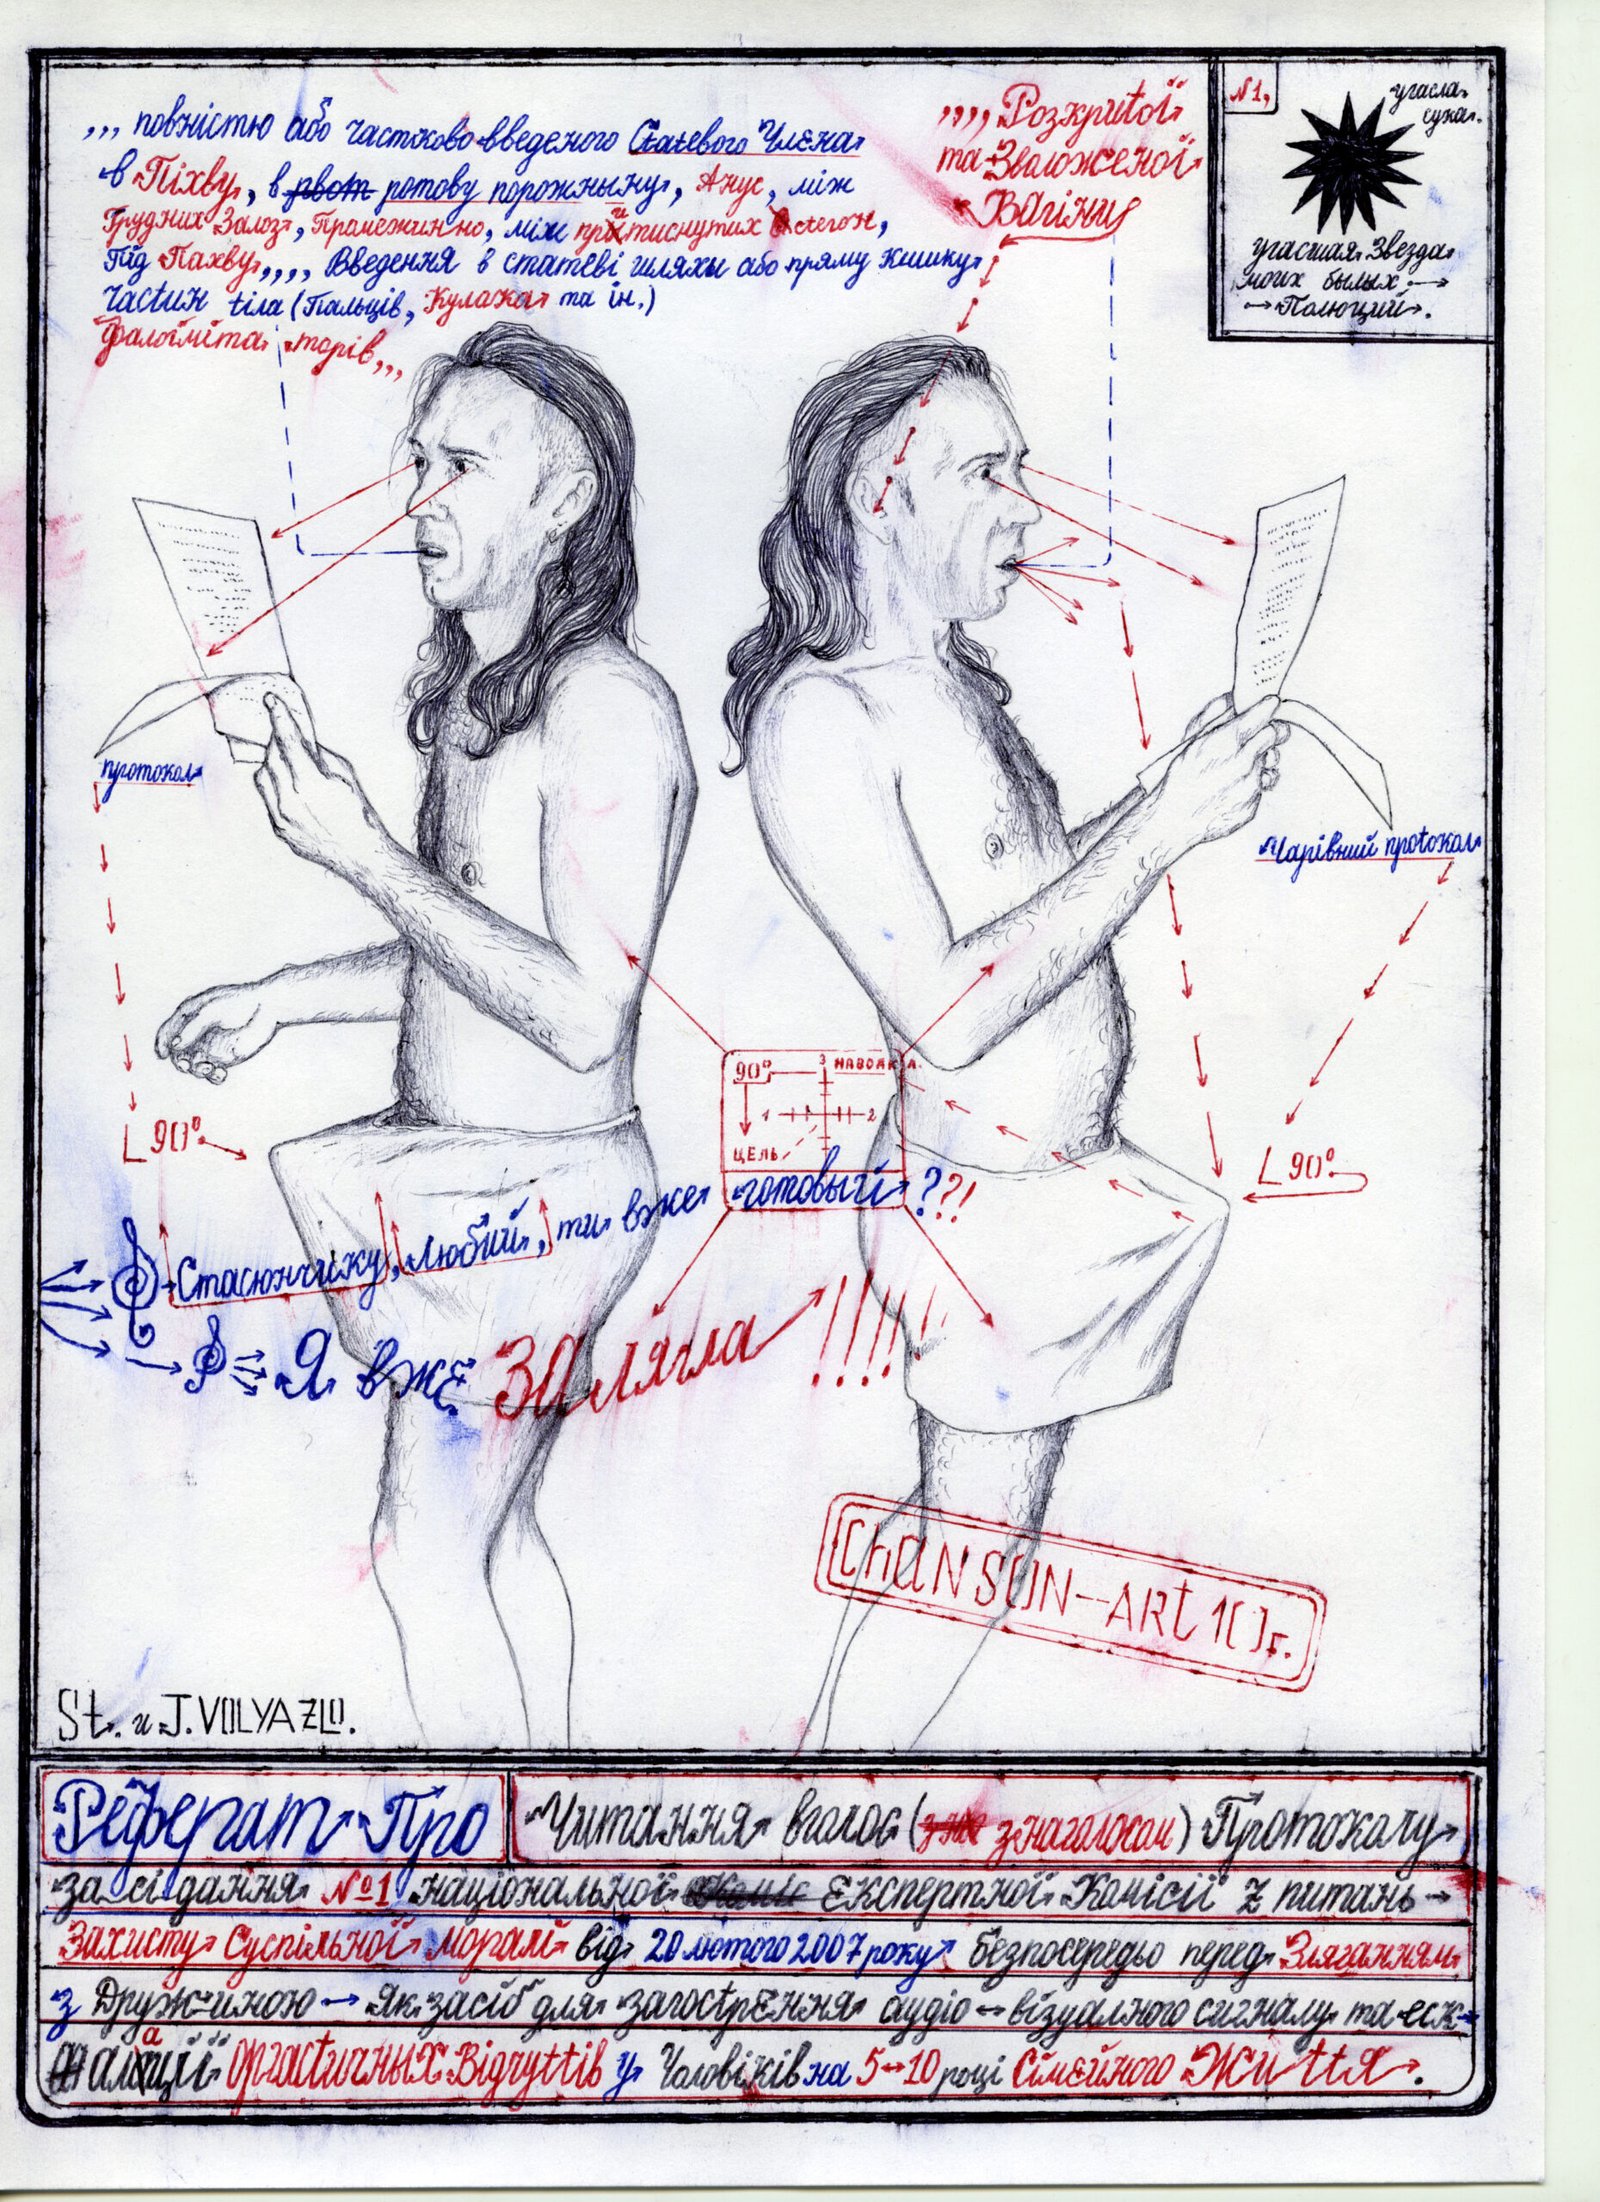 ,,, повністю або частково введеного Статевого Члена
в Піхву, в рвот ротову порожныну, Анус, між
Грудних Залоз, Промежинно, між притиснутих стегон,
Під Пахву,,,, Введення в статеві шляхи або пряму кишку
частин тіла (Пальців, Кулака та ін.)
фалоіміта торів,,,
,,,, Розкритої
та Зволоженої
Вагіни
№1,
угасла
сука.
угасшая Звезда
моих былых
Полюций.
протокол
Чарівний протокол
90°
НАВОДКА.
3
1
2
ЦЕЛЬ
90°
90°
Стасюнчику, Любий, ти вже готовый ??!
Я вже ЗАлягла !!!!!
ChANSON-ARt 10г.
St. и J. VOLYAZLO.
Реферат Про
Читання вголос (з наголосом) Протоколу
засідання №1 національної Експертної Комісії z питань
Захисту Суспільної Моралі від 20 лютого 2007 року безпосередьо перед Зляганням
з Дружиною Як засіб для загострЕння аудіо візуалного сигналу та еск
алації Оргастичных Відчуттів у Чоловіків на 5-10 році Сімейного Життя.